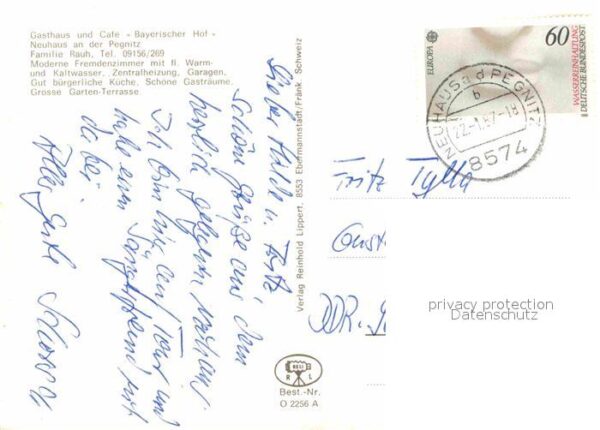 Gasthaus und Cafe «Bayerischer Hof»
Neuhaus an der Pegnitz
Familie Rauh, Tel. 09156/269
Moderne Fremdenzimmer mit fl. Warm-
und Kaltwasser, Zentralheizung, Garagen,
Gut bürgerliche Küche, Schöne Gasträume,
Grosse Garten-Terrasse.
Verlag Reinhold Lippert, 8553 Ebermannstadt/Fränk. Schweiz
EUROPA
60
WASSERREINHALTUNG
DEUTSCHE BUNDESPOST
NEUHAUS a d PEGNITZ
b
22.-1.87-18
8574
u. Fritz
schöne Grüße aus dem
herrlich gelegenen Neuhaus.
Ich bin hier auf Tour und
habe einen Sangesfreund mit
dabei.
Alles Gute
Fritz Tylla
DDR.
privacy protection
Datenschutz
R L
Best.-Nr.
O 2256 A